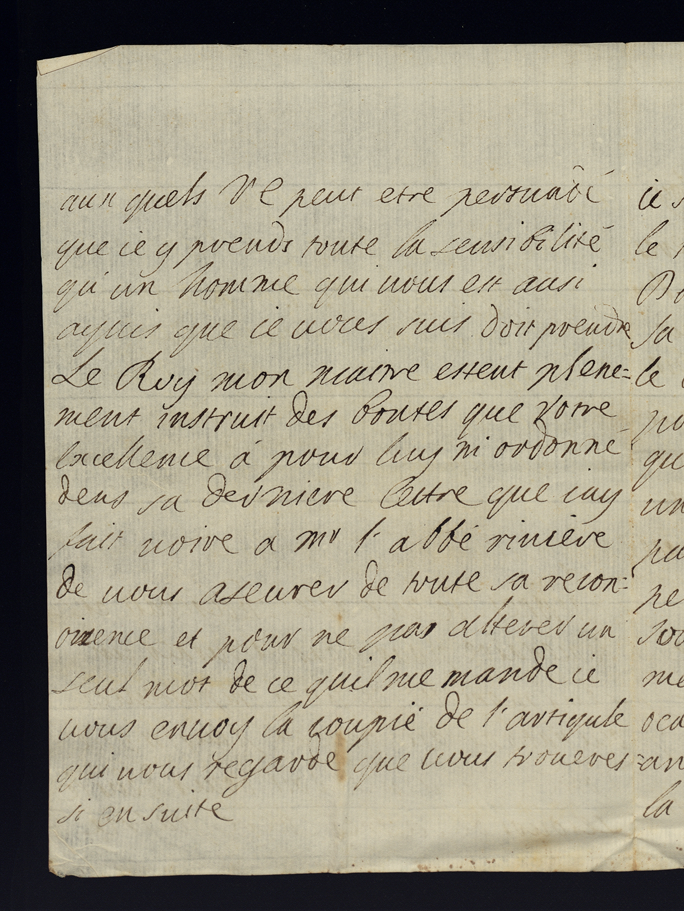 aux quels V E peut etre persuadé
que ie y prends toute la sensibilité
qu'un homme qui vous est ausi
aquis que ie vous suis doit prendre
Le Roy mon maitre estent plene=
ment instruit des bontes que votre
Excellence á pour luy m ordonne
dens sa derniere lettre que iay
fait voire a mr l'abbé riviere
de vous aseurer de toute sa recon=
oisence et pour ne pas alterer un
seul mot de ce quil me mande ie
vous envoy la coupié de l'artiqule
qui vous regarde que vous trouveres
si en suite